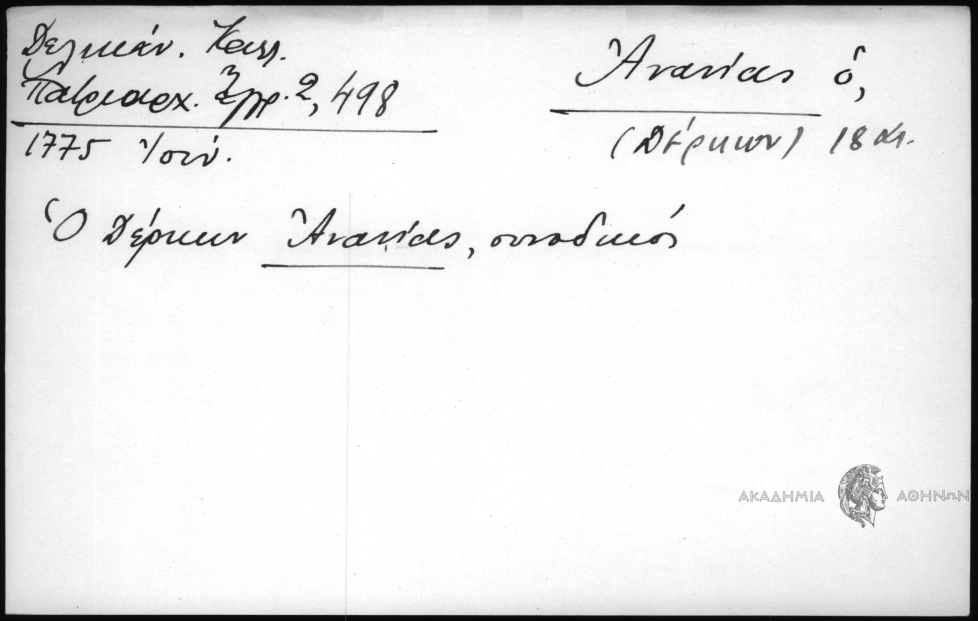 Δελικάν. Καλ.
Πατριαρχ. Ἔγγρ. 2, 498
1775 Ἰουν.
Ἀνανίας ὁ,
(Δέρκων) 18 αι.
Ὁ Δέρκων Ἀνανίας, συνοδικός
ΑΚΑΔΗΜΙΑ ΑΘΗΝΩΝ